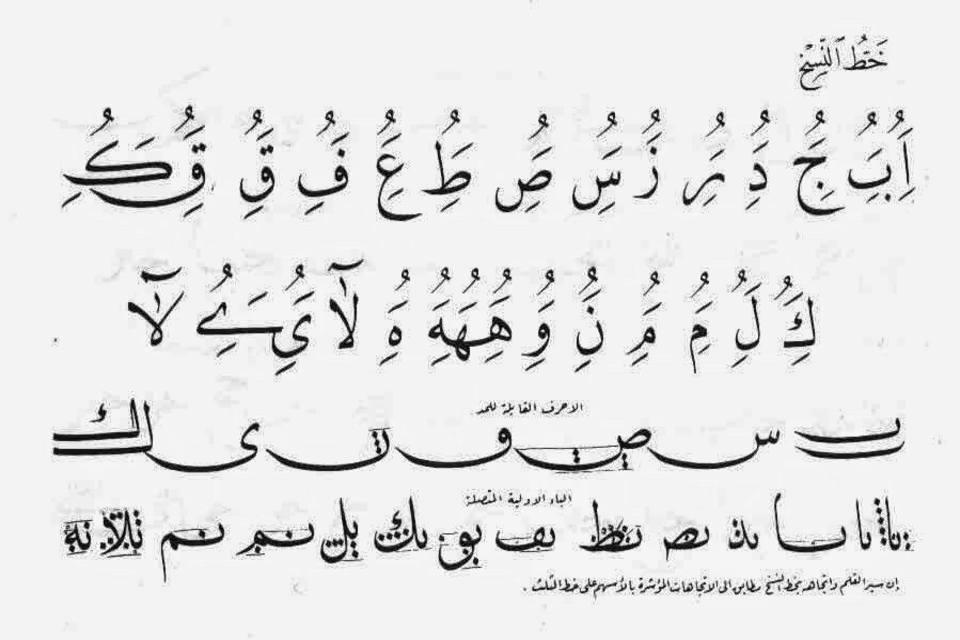 خَطُّ النَّسْخِ
اَُِ بَُِ جَُِ دَُِ رَُِ زَُِ سَُِ صَُِ طَُِ عَُِ فَُِ قَُِ قَُِ كَُِ
كَُِ لَُِ مَُِ مَُِ نَُِ وَُِ هَُِهَُِهَُِ هَُِ لآ يَُِ ےَُِ لآ
الاحرف القابلة للمد
ب س ص ق ت ى ك
الباء الاولية المتصلة
با با بد بص بط بف بو بك بل نم نم
إن سير القلم واتجاهه بخط النسخ مطابق الى الاتجاهات المؤشرة بالأسهم على خط الثلث .